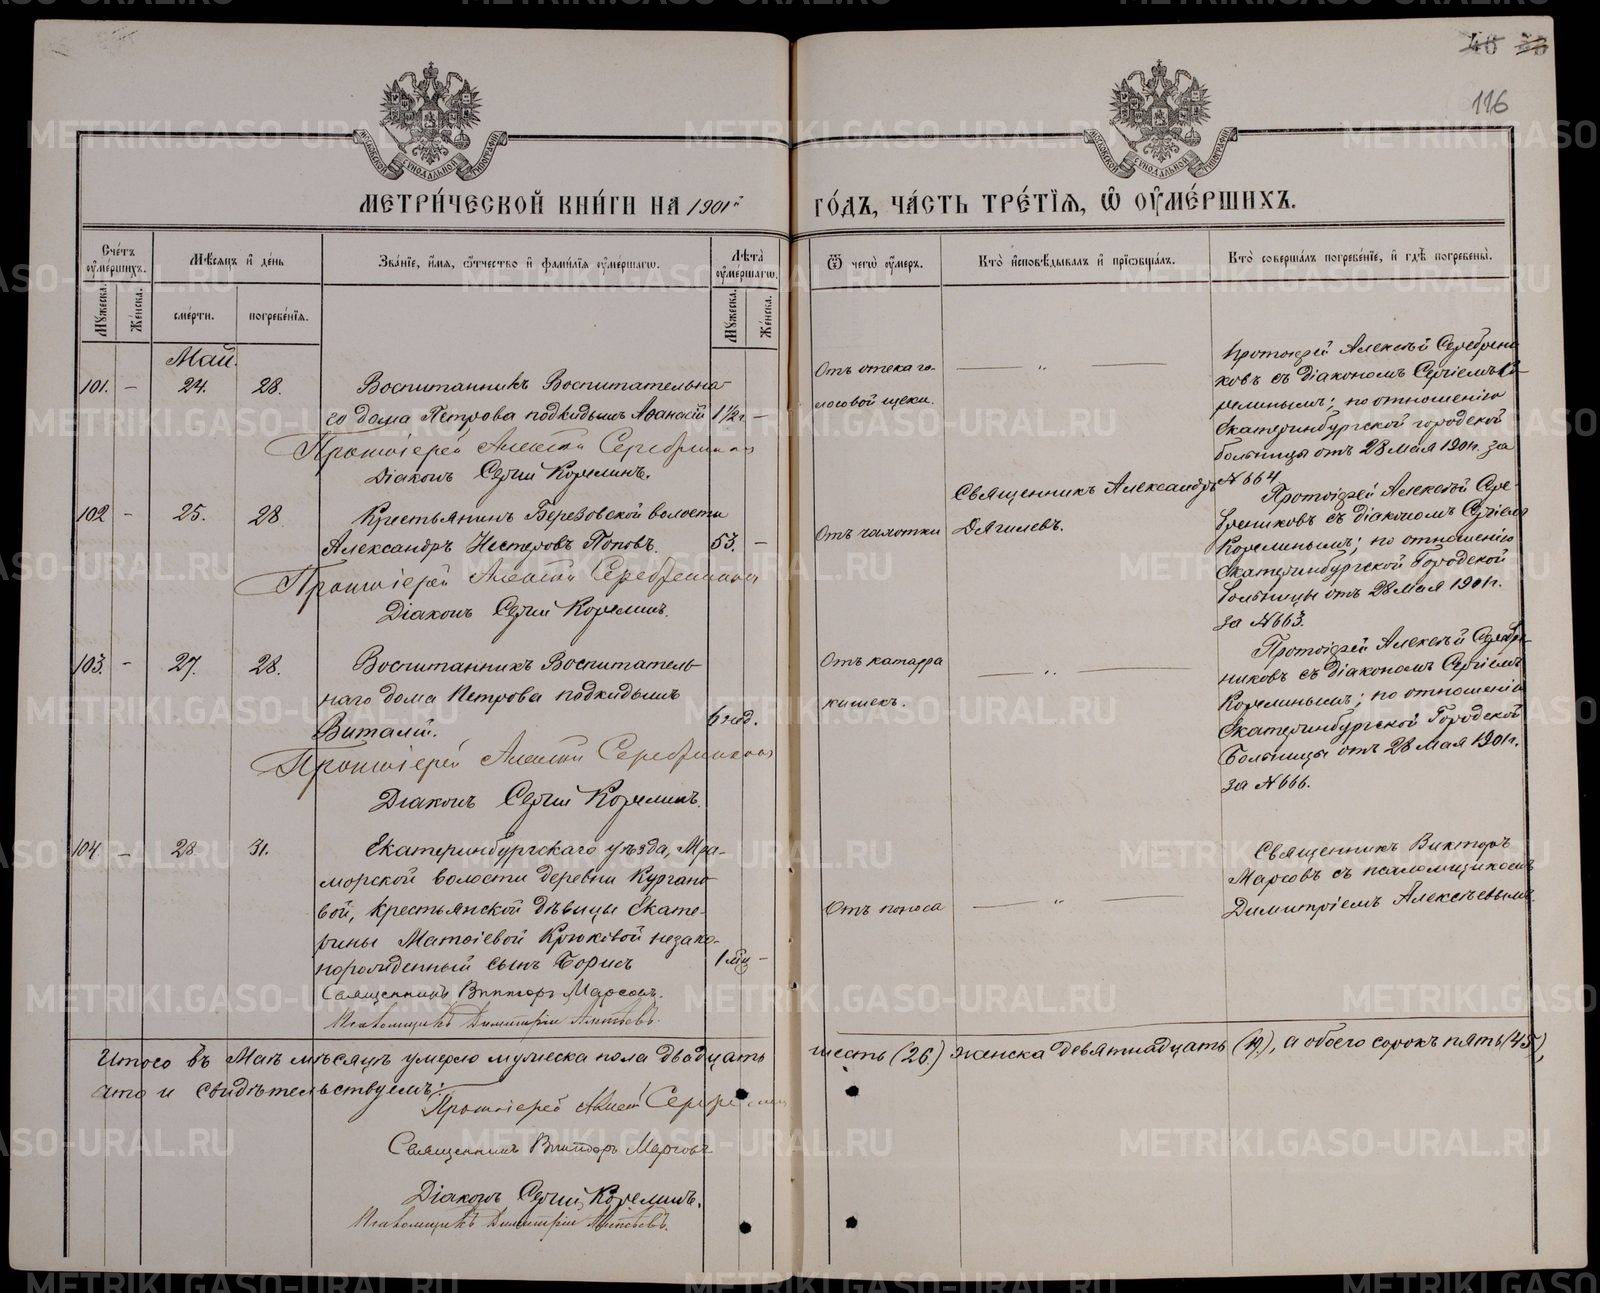 40 38
116
МЕТРИ́ЧЕСКОЙ КНИ́ГИ НА 1901й
ГО́ДЪ, ЧА́СТЬ ТРЕ́ТІЯ, Ѡ҆ ОУ҆МЕ́РШИХЪ.
Сче́тъ оу҆ме́ршихъ.
Мѣ́сяцъ и҆ де́нь
Зва́ніе, и҆́мя, ѻ҆́тчество и҆ фами́лія оу҆ме́ршагѡ.
Лѣ́та оу҆ме́ршагѡ.
Ѿ чегѡ̀ оу҆́меръ.
Кто̀ и҆сповѣ́дывалъ и҆ прїѻбща́лъ.
Кто̀ соверша́лъ погребе́ніе, и҆ гдѣ̀ погребены̀.
Му́жеска.
Же́нска.
сме́рти.
погребе́нія.
Му́жеска.
Же́нска.
Май.
101. – 24. 28.
Воспитанникъ Воспитательна-
го дома Петрова подкидышъ Аѳанасій 1½ г. –
Протоіерей Алексѣй Серебренниковъ
Діаконъ Сергій Корелинъ.
Отъ отека го-
лосовой щели.
– „ –
Протоіерей Алексѣй Серебрени-
ковъ съ діакономъ Сергіемъ Ко-
релинымъ; по отношенію
Екатеринбургской городской
больницы отъ 28 мая 1901 г. за
№ 664
102 – 25. 28
Крестьянинъ Березовской волости
Александръ Нестеровъ Поповъ. 53. –
Протоіерей Алексѣй Серебренниковъ
Діаконъ Сергій Корелинъ.
Отъ чахотки
Священникъ Александръ
Дягилевъ.
Протоіерей Алексѣй Сере-
брениковъ съ діакономъ Сергіемъ
Корелинымъ; по отношенію
Екатеринбургской Городской
больницы отъ 28 мая 1901 г.
за № 663.
103. – 27. 28.
Воспитанникъ Воспитатель-
наго дома Петрова подкидышъ
Виталій. 6 нед.
Протоіерей Алексѣй Серебренниковъ
Діаконъ Сергій Корелинъ.
Отъ катарра
кишекъ.
– „ –
Протоіерей Алексѣй Серебре-
никовъ съ діакономъ Сергіемъ
Корелинымъ; по отношенію
Екатеринбургской Городской
Больницы отъ 28 мая 1901 г.
за № 666.
104 – 28 31.
Екатеринбургскаго уѣзда, Мра-
морской волости деревни Кургано-
вой, крестьянской дѣвицы Екате-
рины Матѳіевой Крюковой незако-
норожденный сынъ Борисъ 1 мѣс –
Священникъ Викторъ Марсовъ.
Псаломщикъ Димитрій Алексѣевъ.
Отъ поноса
– „ –
Священникъ Викторъ
Марсовъ съ псаломщикомъ
Димитріемъ Алексѣевымъ.
Итого въ Маѣ мѣсяцѣ умерло мужеска пола двадцать
шесть (26) женска девятнадцать (19), а обоего сорокъ пять (45),
что и свидѣтельствуемъ:
Протоіерей Алексѣй Серебренниковъ
Священникъ Викторъ Марсовъ
Діаконъ Сергій Корелинъ.
Псаломщикъ Димитрій Алексѣевъ.
METRIKI.GASO-URAL.RU